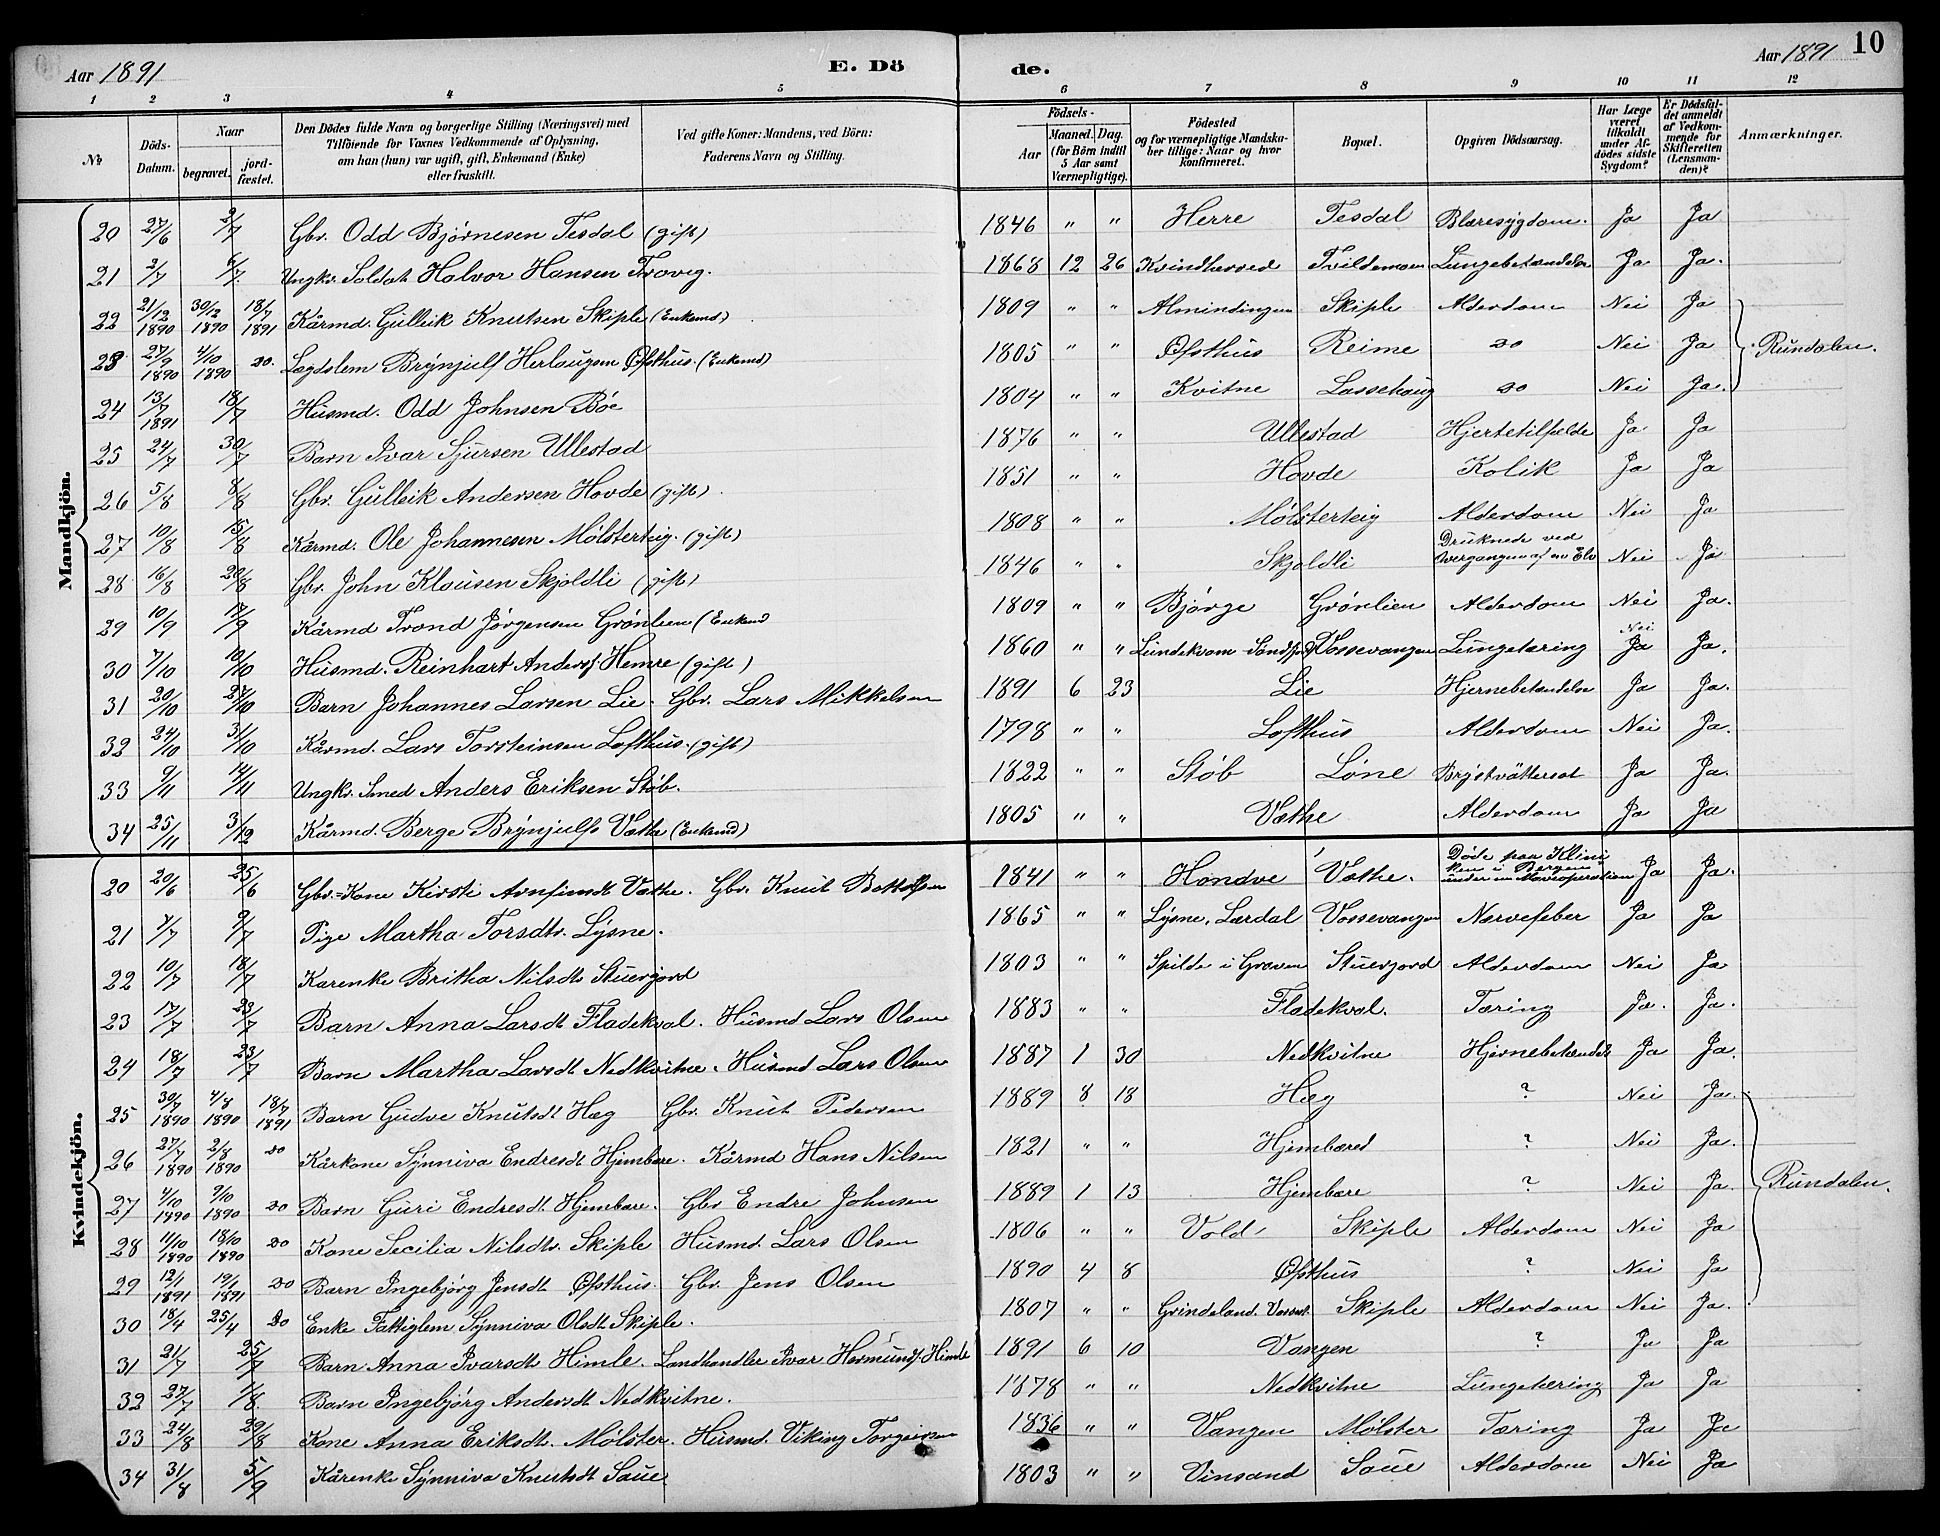 Aar 1891 E. Dö de. Aar 1891 10
1 2 3 4 5 6 7 8 9 10 11 12
№ Döds-Datum. Naar begravet. jord-fæstet. Den Dödes fulde Navn og borgerlige Stilling (Næringsvei) med Tilföiende for Voxnes Vedkommende af Oplysning, om han (hun) var ugift, gift, Enkemand (Enke) eller fraskilt. Ved gifte Koner: Mandens, ved Börn: Faderens Navn og Stilling. Födsels- Aar Maaned. Dag. (for Börn indtil 5 Aar samt Værnepligtige). Födested og for værnepligtige Mandskaber tillige: Naar og hvor Konfirmeret. Bopæl. Opgiven Dödsaarsag. Har Læge været tilkaldt under Afdödes sidste Sygdom? Er Dödsfaldet anmeldt af Vedkommende for Skifteretten (Lensmanden)? Anmærkninger.
Mandkjön.
20 27/6 2/7 Gbr. Odd Bjørnesen Tesdal (gift) 1846 " " Herre Tesdal Blæresygdom. Ja Ja
21 2/7 6/7 Ungkr. Soldat Halvor Hansen 1868 12 26 Kvindherred Tvildemoen Lungebetændelse Ja Ja.
22 21/12 1890 30/12 1890 18/7 1891 Kårmd. Gulleik Knutsen Skiple (Enkemd) 1809 " " Almindingen Skiple Alderdom Nei Ja
23 27/9 1890 4/10 1890 do. Lægdslem Brynjulf Herlaugsen Øfsthus. (Enkemd) 1805 " " Øfsthus Reime do Nei Ja Rundalen.
24 13/7 1891 18/7 Husmd. Odd Johnsen Bøe 1804 " " Kvitne Lassehaug do Nei Ja.
25 24/7 30/7 Barn Ivar Sjursen Ullestad 1876 " " Ullestad Hjertetilfælde Ja Ja
26 5/8 8/8 Gbr. Gulleik Andersen Hovde (gift). 1851 " " Hovde Kolik Ja Ja
27 10/8 15/8 Kårmd. Ole Johannesen Mølsterteig. (gift) 1808 " " Mølsterteig Alderdom Nei Ja
28 16/8 20/8 Gbr. John Klausen Skjoldli (gift) 1846 " " Skjoldli Druknede ved Overgangen af en Elv Nei Ja
29 10/9 17/9 Kårmd Trond Jørgensen Grønlien (Enkemd 1809 " " Bjørge Grønlien Alderdom Nei Ja.
30 7/10 10/10 Husmd. Reinhart Anders. Hemre (gift) 1860 " " Lundekvam Vossevangen Lungetæring Nei Ja Ja.
31 20/10 27/10 Barn Johannes Larsen Lie. Gbr. Lars Mikkelsen 1891 6 23 Lie Hjernebetændelse Ja Ja.
32 24/10 31/10 Kårmd. Lars Torsteinsen Lofthus. (gift) 1798 " " Lofthus Alderdom Nei Ja.
33 9/11 14/11 Ungkr. Smed Anders Eriksen Støb. 1822 " " Støb Løne Brystvåttersot Ja Ja.
34 25/11 3/12 Kårmd. Berge Brynjulfs Væthe (Enkemd) 1805 " " Væthe Alderdom Ja Ja
Kvindekjön.
20 20/6 25/6 Gbr.-Kone Kirsti Arnfinsdt Væthe. Gbr. Knut 1841 " " Hondve Væthe. Døde paa Kliniken i Bergen under en Ja Ja.
21 4/7 9/7 Pige Martha Torsdtr. Lysne. 1865 " " Lysne, Lærdal Vossevangen Nervefeber Ja Ja
22 10/7 18/7 Karenke Britha Nilsdt Stuergord 1803 " " Spilde i Graven Stuergord Alderdom Nei Ja
23 17/7 23/7 Barn Anna Larsdt Fladekval. Husmd Lars Olsen 1883 " " Fladekval. Tæring Ja. Ja.
24 18/7 23/7 Barn Martha Larsdt Nedkvitne. Husmd Lars Olsen 1887 1 30 Nedkvitne Hjernebetændels Ja Ja.
25 30/7 1890 4/8 1890 18/7 1891 Barn Gudve Knutsdt Hæg Gbr. Knut Pedersen 1889 8 18 Hæg ? Nei Ja.
26 27/7 1890 2/8 1890 do Kårkone Synniva Endresdt Hjembare. Kårmd Hans Nilsen 1821 " " Hjembared ? Nei Ja.
27 4/10 1890 9/10 1890 do Barn Guri Endresdt Hjembare. Gbr Endre Johnsen 1889 1 13 Hjembare ? Nei Ja. Rundalen.
28 11/10 1890 18/10 1890 do Kone Secilia Nilsdtr. Skiple Husmd. Lars Olsen 1806 " " Vold Skiple Alderdom Nei Ja
29 12/1 1891 19/1 1891 do Barn Ingebjørg Jensdt Øfsthus. Gbr. Jens Olsen 1890 4 8 Øfsthus ? Nei Ja
30 18/4 25/4 do Enke Fattiglem Synniva Olsdt Skiple. 1807 " " Grindeland. Skiple Alderdom Nei Ja.
31 21/7 25/7 Barn Anna Ivarsdt Himle. Landhandler Ivar Hermunds. Himle 1891 6 10 Vangen ? Ja Ja
32 27/7 1/8. Barn Ingebjørg Andersdt Nedkvitne. 1878 " " Nedkvitne Lungetæring Ja Ja
33 24/8 29/8 Kone Anna Eriksdt. Mølster. Husmd. Viking Torgeirsen 1836 " " Vangen Mølster Tæring Ja Ja
34 31/8 5/9 Kårenke Synniva Knutsdt Saue. 1803 " " Vinsand Saue Alderdom Nei Ja